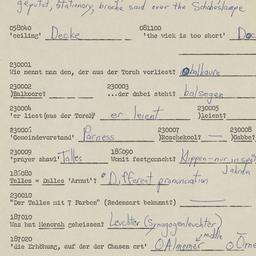 geputzt, stationary, broche said over the Schabeslampe
058040 081100
'ceiling' Decke 'the wick is too short' Doc
230001
Wie nennt man den, der aus der Torah vorliest?
230002 230003
)Balkore? ...der dabei steht? balsegen
230004 230005
'er liest(aus der Torah)' er leient )leient?
230006 230007 230008
'Gemeindevorstand' Parness )Roschekool? — )Gabbe?
230009 185090
'prayer shawl' Talles Womit festgemacht? Klippen - nur in spät
Jahren
185080
Talles = Dalles 'Armut'? Different pronunciation
230010
"Der Talles mit 7 Farben" (Redensart bekannt?) —
187010
Was hat Menorah geheissen? Leuchter (Synagogenleuchter)
187020 Middle
'die Erhöhung, auf der der Chasen ort' Almemer Ome